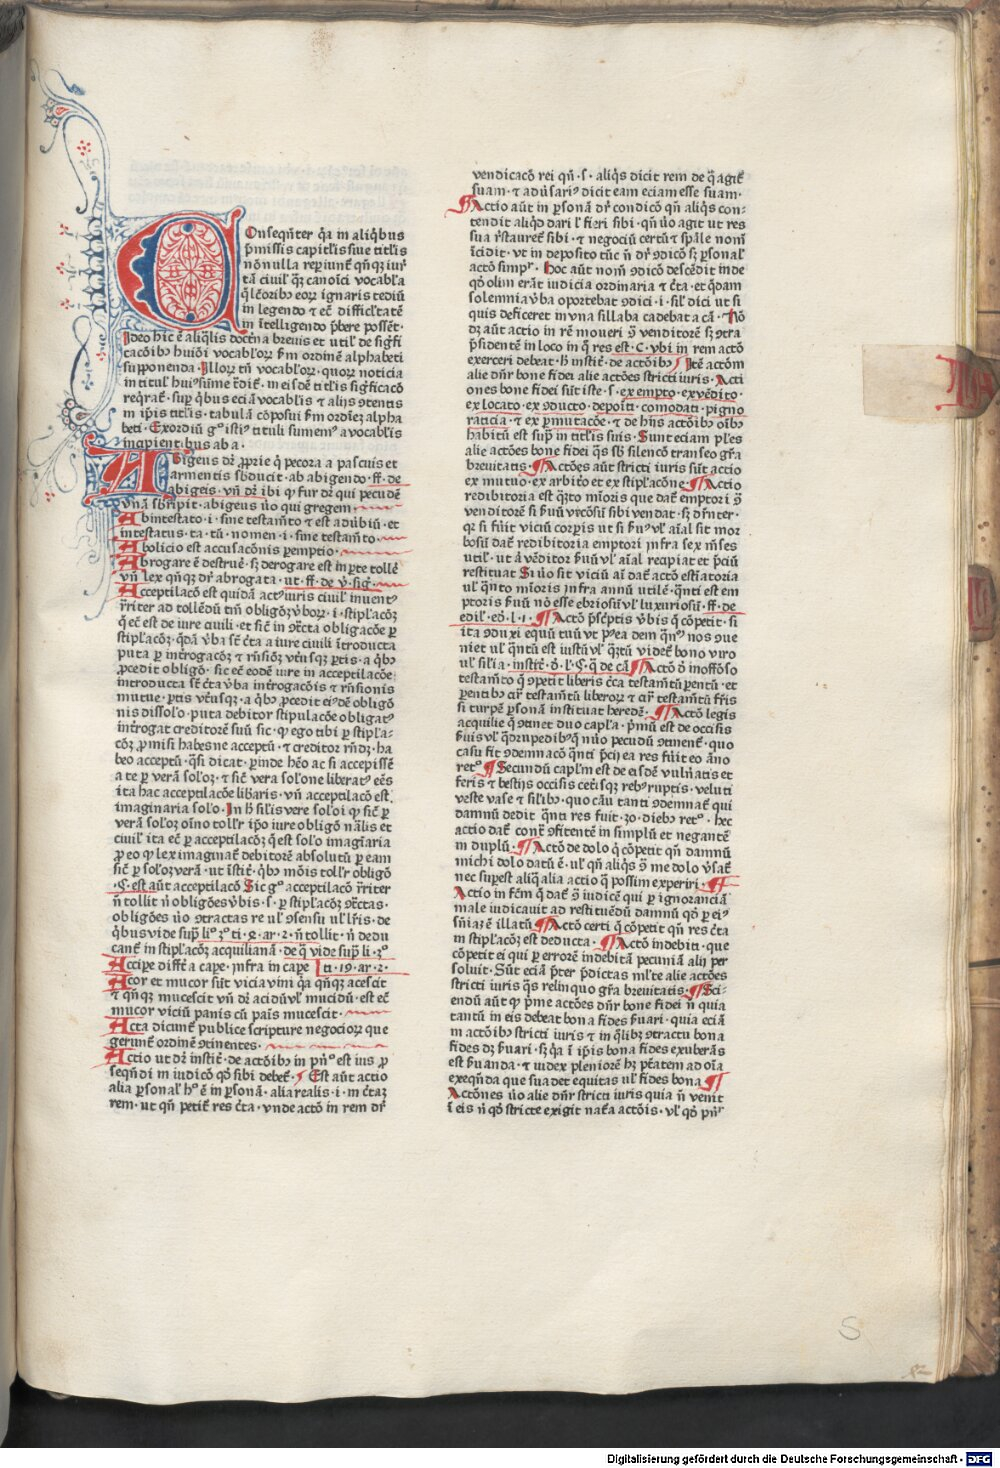 Conseqn̄ter qꝛ in aliqͥbus
p̄missis capitl'is siue titl'is
nōnulla reꝑiunt͛ qn̄qꝫ iurͥ
tā ciuil' qꝫ canoīci vocabl'a
qͥ lc̄oribꝫ eoꝝ ignaris tediū
in legendo ⁊ ec̄ difficl'tatē
in ītelligendo p̄bere possēt ·
Ideo hic ē aliqͥlis doctͥna breuis et util' de sigͥfi
cacōibꝫ huiōi vocabl'oꝝ ẜm ordinē alphabeti
supponenda · Illoꝝ tn̄ vocabl'oꝝ · quoꝝ noticia
in titul' huiꝰ sūme rͬdiē · in eisdē titl'is sigͥficacō
reqͥrat͛ · suꝑ qͥbus eciā vocabl'is ⁊ alijs ꝯtentis
in ip̄is titl'is · tabulā cōposui ẜm ordinē alpha
beti · Exordiū gͦ istiꝰ tituli sumemꝰ a vocabl'is
incipient͛bus ab a ·
Abigeus dr̄ ꝓprie qͥ pecora a pascuis et
armentis sb̄ducit · ab abigendo · ff · de
abigeis · vn̄ dr̄ ibi ꝙ fur dr̄ qui pecudē
vnā sb̄ripit · abigeus v̄o qui gregem ·
Abintestato · i · sine testam̄to ⁊ est adūbiū · et
intestatus · ta · tū · nomen · i · sine testam̄to ·
Abolicio est accusacōnis ꝑemptio ·
Abrogare ē destrue͛ · sꝫ derogare est in ꝑte tolle͛
vn̄ lex qn̄qꝫ dr̄ abrogata · ut · ff · de v̄ · sig͛ ·
Acceptilacō est quidā actꝰ iuris ciuil' inuentꝰ
r̄riter ad tollēdū tm̄ obligōꝫ v̄boꝝ · i · stipl'acōꝫ
qͥ ec̄ est de iure ciuili · et sic̄ in ꝯtͣcta obligacōe ꝑ
stipl'acōꝫ · qͣdā v̄ba sc̄ c̄ta a iure ciuili ītroducta
puta ꝑ int͛rogacōꝫ ⁊ rn̄siōꝫ vt͛usqꝫ ꝑtis · a qͥbꝫ
ꝓcedit obligō · sic ec̄ eodē iure in acceptilacōe
introducta sc̄ c̄ta v̄ba int͛rogacōis ⁊ rn̄sionis
mutue · ꝑtis vt͛usqꝫ · a qͥbꝫ ꝓcedit eiꝰdē obligō
nis dissol'o · puta debitor stipulacōe obligatꝰ
int͛rogat creditorē suū sic · ꝙ ego tibi ꝑ stipl'a-
cōꝫ ꝓmisi habes ne acceptū · ⁊ creditor rn̄dꝫ · ha
beo acceptū · qͣsi dicat · ꝑinde heo ac si accepissē
a te ꝑ verā sol'oꝫ · ⁊ sic̄ vera sol'one liberatꝰ ees
ita hac acceptilacōe libaris · vn̄ acceptilacō est
imaginaria sol'o · In h̄ sil'is vere sol'oi ꝙ sic̄ ꝑ
verā sol'oꝫ oīno tollr̄ ip̄o iure obligō nāl'is et
ciuil' ita ec̄ ꝑ acceptilacōꝫ qͥ est sol'o imagīaria
ꝓ eo ꝙ lex imaginat͛ debitorē absolutū ꝑ eam
sic̄ ꝑ sol'oꝫ verā · ut īstit͛ · qͥbꝫ mōis tollr̄ obligō
· C · est aūt acceptilacō Sic gͦ acceptilacō r̄riter
n̄ tollit n̄ obligōes v̄bis · s · ꝑ stipl'acōꝫ ꝯtͣctas ·
obligōes v̄o ꝯtractas re ul' ꝯsensu ul' lr̄is · de
qͥbus vide supͣ liͦ · ꝫͦ ti · 2 · ar · 2 · n̄ tollit · n̄ dedu
cant͛ in stipl'acōꝫ acquilianā · de qͣ vide supͣ li · ꝫͦ
Accipe diffr̄t a cape · infra in cape ti · 19 · ar · 2 ·
Acor et mucor sūt vicia vini qͣ qn̄qꝫ acescit
⁊ qn̄qꝫ mucescit vn̄ dr̄ acidū ul' mucidū · est ec̄
mucor viciū panis cū paīs mucescit ·
Acta dicunt͛ publice scripture negocioꝝ que
gerunt͛ ordinē ꝯtinentes ·
Actio ut dꝫ instit͛ · de actōibꝫ in prͥnͦ est ius ꝓ
seqn̄di in iudicō qͦ sibi debet͛ · Est aūt actio
alia ꝑsonal' hͦ ē in ꝑsonā · alia realis · i · in c̄taꝫ
rem · ut qn̄ petit͛ res c̄ta · vnde actō in rem dr̄
vendicacō rei qn̄ · s · aliqͥs dicit rem de qͣ agit͛
suam · ⁊ adūsariꝰ dicit eam eciam esse suam ·
Actio aūt in ꝑsonā dr̄ condicō qn̄ aliqͥs con-
tendit aliqͥd dari l' fieri sibi · qn̄ v̄o agit ut res
sua rͬstauret͛ sibi · ⁊ negociū certū ⁊ sp̄ale nom̄
īcidit · vt in deposito tūc n̄ dr̄ ꝯdicō sꝫ ꝑsonal'
actō simprͥ · Hoc aūt nom̄ ꝯdicō descēdit inde
qͦ olim erāt iudicia ordinaria ⁊ c̄ta · et qͥdam
solemnia v̄ba oportebat ꝯdici · i · sil' dici ut si
quis deficeret in vna sillaba cadebat a cā · Nō
dꝫ aūt actio in rē moueri ꝯ venditorē sꝫ ꝯtra
pͬsidentē in loco in qͦ res est · C · vbi in rem actō
exerceri debeat · h̄ instit͛ · de actōibꝫ Itē actōm
alie dn̄r bone fidei alie actōes stricti iuris · Acti
ones bone fidei sūt iste · s · ex empto · ex vēdito ·
ex locato · ex ꝯducto · depōiti · comodati · pigno
raticia · ⁊ ex ꝑmutacōe · ⁊ de hijs actōibꝫ oībꝫ
habitū est supͣ in titl'is suis · Sunt eciam pl'es
alie actōes bone fidei qͥs sb̄ silencō transeo grͣa
breuitatis · Actōes aūt stricti iuris sūt actio
ex mutuo · ex arbitͦo et ex stipl'acōne · Actio
redibitoria est qͥꝫto mīoris que dat͛ emptori ꝯ
venditorē si ẜuū vicōsū sibi vendat · sꝫ dr̄nter ·
qꝛ si fūit viciū corꝑis ut si ẜuꝰ ul' aīal sit mor
bosū dat͛ redibitoria emptori infra sex mēses
util' · ut a vēditor ẜuū ul' aīal recipiat et p̄ciū
restituat Si v̄o sit viciū aī dat͛ actō estīatoria
ul' qͣnto mīoris infra annū utilē · qͣnti est em
ptoris ẜuū nō esse ebriosū ul' luxuriosū · ff · de
edil' · ed̄ · l · 1 · Actō p̄sc̄ptis v̄bis qͥ cōpetit · si
ita ꝯduxi equū tuū vt pͦea dem qͣnͫ nos ꝯue
niet ul' qͣntū est iustū ul' qͣꝫtū videt͛ bono viro
ul' sil'ia · instit͛ · ō · l' · C · qͣ de cā Actō ō inoffōso
testam̄to qͥ ꝯpetit liberis c̄ca testam̄tū ꝑentū · et
ꝑentibꝫ cͬ testam̄tū liberoꝝ ⁊ cͬ testam̄tū fr̄is
si turpē ꝑsonā instituat heredē · Actō legis
acquilie qͥ ꝯtinet duo capl'a · pͥmū est de occisis
ẜuis ul' qͣdrupedibꝫ qͥ nūo pecudū ꝯtinent͛ · quo
casu fit ꝯdemnacō qͣnti p̄cij ea res fūit eo āno
retͦ Secundū capl'm est de eisdē vuln̄atis et
feris ⁊ bestijs occisis cet͛isqꝫ rebꝫ ruptis · veluti
veste vase ⁊ sil'ibꝫ · quo cāu tanti ꝯdemnat͛ qui
damnū dedit qͣnti res fuit · 30 · diebꝫ retͦ · hec
actio dat͛ contͣ ꝯfitentē in simplū et negantē
in duplū · Actō de dolo qͥ cōpetit qn̄ damnū
michi dolo datū ē · ul' qn̄ aliqͥs ꝯ me dolo v̄sat͛
nec suꝑest aliqͣ alia actio qͣ possim exꝑiri ·
Actio in fcm̄ qͥ dat͛ ꝯ iudicē qui ꝑ ignoranciā
male iudicauit ad restituēdū damnū qͦ ꝑ eiꝰ
sn̄iaꝫ ē illatū Actō certi qͥ cōpetit qn̄ res c̄ta
in stipl'acōꝫ est deducta · Actō indebiti · que
cōpetit ei qui ꝑ errorē indebitā pecuniā alij per
soluit · Sūt eciā p̄ter p̄dictas ml'te alie actōes
stricti iuris qͥs relinquo grͣa breuitatis · Sci-
endū aūt ꝙ pͥme actōes dn̄r bone fidei n̄ quia
tantū in eis debeat bona fides ẜuari · quia eciā
in actōibꝫ stricti iuris ⁊ in qͥlibꝫ ꝯtractu bona
fides dꝫ ẜuari · sꝫ qͣ ī ip̄is bona fides exuberās
est ẜuanda · ⁊ iudex pleniorē hꝫ p̄tatem ad oīa
exeqn̄da que suadet equitas ul' fides bona
Actōnes v̄o alie dn̄r stricti iuris quia n̄ venit
ī eis n̄ qͦ stricte exigit nat͛a actōis · ul' qͦ prͥnͬ
S
Digitalisierung gefördert durch die Deutsche Forschungsgemeinschaft - DFG